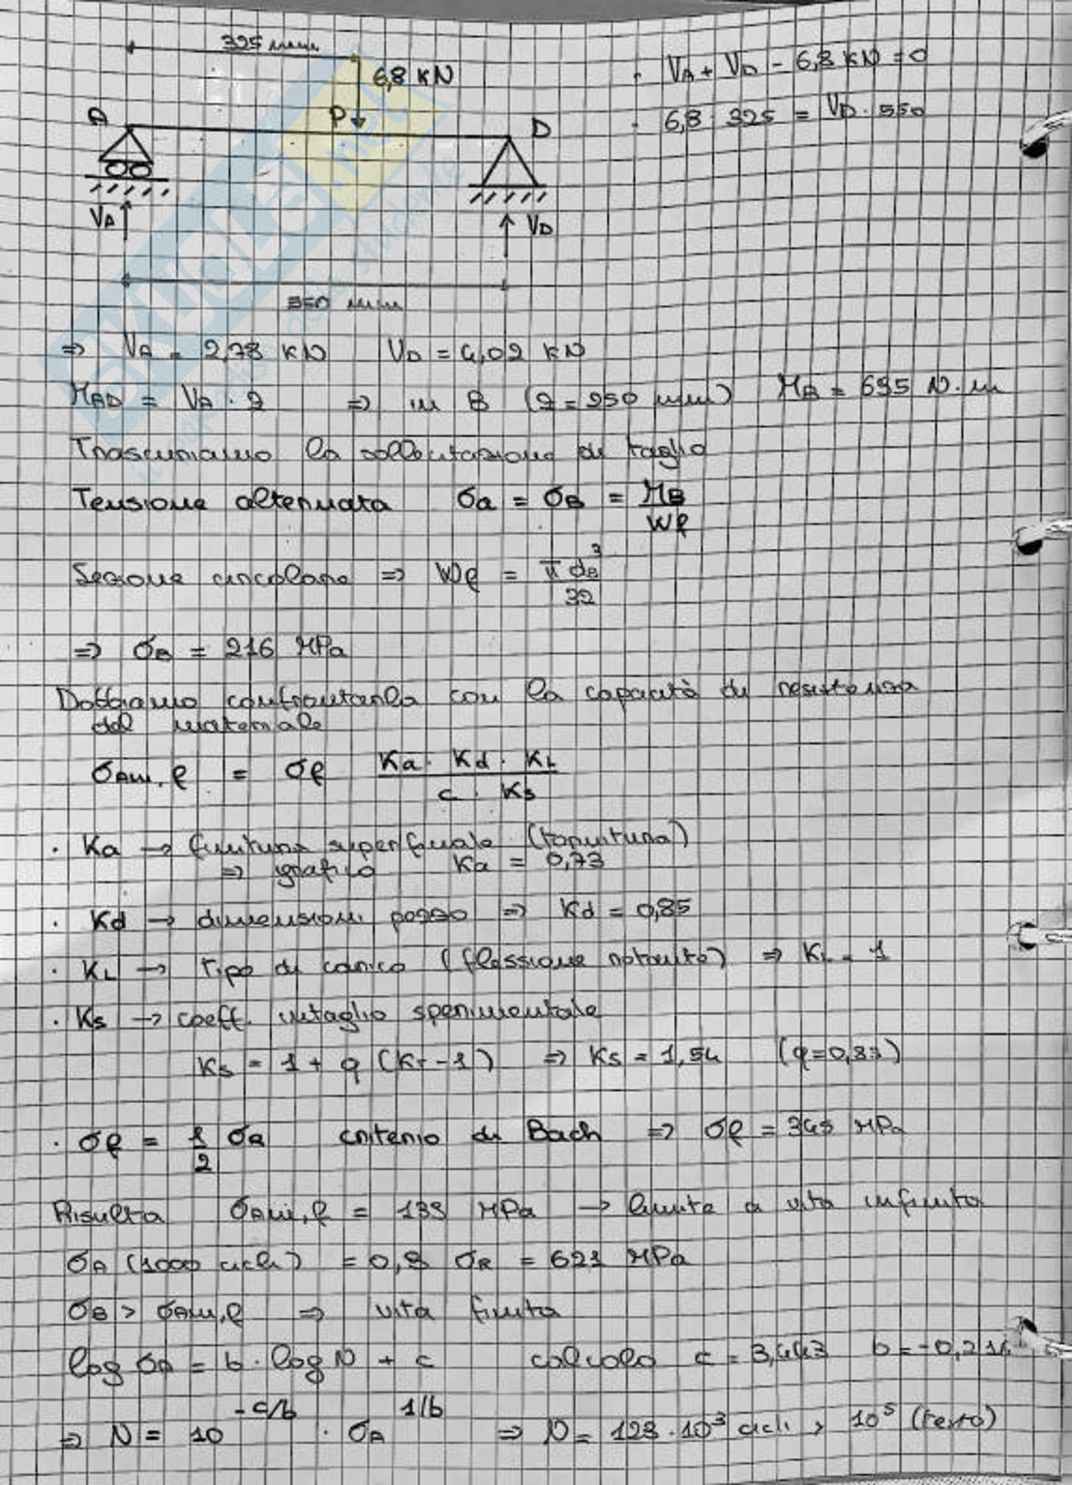 325 mm
6,8 kN
VA + VD - 6,8 kN = 0
P
A
D
6,8 325 = VD · 550
VA
VD
550 mm
⇒ VA = 2,78 kN VD = 4,02 kN
MAD = VA · z ⇒ in B (z = 250 mm) MB = 695 N·m
Trascuriamo la sollecitazione di taglio
Tensione alternata σa = σB = MB / Wf
Sezione circolare ⇒ Wf = π dB³ / 32
⇒ σB = 216 MPa
Dobbiamo confrontarla con la capacità di resistenza
del materiale
σAM,f = σf Ka · Kd · KL / c · Ks
· Ka → finitura superficiale (tornitura)
⇒ grafico Ka = 0,73
· Kd → dimensioni pezzo ⇒ Kd = 0,85
· KL → tipo di carico (flessione rotante) ⇒ KL = 1
· Ks → coeff. intaglio sperimentale
Ks = 1 + q (Kt - 1) ⇒ Ks = 1,54 (q=0,83)
· σf = 1/2 σR criterio di Bach ⇒ σf = 345 MPa
Risulta σAMM,f = 139 MPa → limite a vita infinita
σA (1000 cicli) = 0,9 σR = 621 MPa
σB > σAMM,f ⇒ vita finita
log σA = b · log N + c calcolo c = 3,443 b = -0,216
⇒ N = 10^-c/b · σA^1/b ⇒ N = 123 · 10³ cicli > 10⁵ (testo)